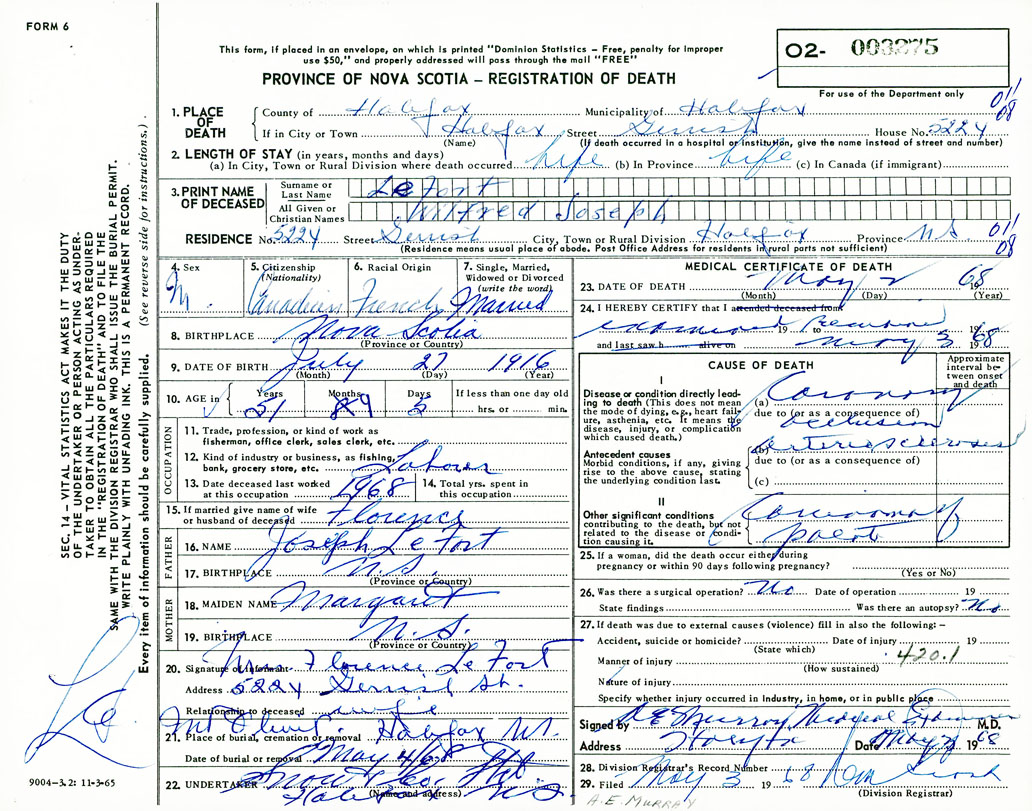 FORM 6
This form, if placed in an envelope, on which is printed "Dominion Statistics – Free, penalty for improper
use $50," and properly addressed will pass through the mail "FREE"
PROVINCE OF NOVA SCOTIA – REGISTRATION OF DEATH
O2- 003275
For use of the Department only
011
08
1. PLACE OF DEATH
County of Halifax Municipality of Halifax
If in City or Town Halifax Street Gerrish House No. 5224
(Name) (If death occurred in a hospital or institution, give the name instead of street and number)
2. LENGTH OF STAY (in years, months and days)
(a) In City, Town or Rural Division where death occurred life (b) In Province life (c) In Canada (if immigrant)
3. PRINT NAME OF DECEASED
Surname or Last Name LeFort
All Given or Christian Names Wilfred Joseph
RESIDENCE No. 5224 Street Gerrish City, Town or Rural Division Halifax Province NS
011
08
(Residence means usual place of abode. Post Office Address for residents in rural parts not sufficient)
4. Sex M.
5. Citizenship (Nationality) Canadian
6. Racial Origin French
7. Single, Married, Widowed or Divorced (write the word) Married
8. BIRTHPLACE Nova Scotia
(Province or Country)
9. DATE OF BIRTH July 27 1916
(Month) (Day) (Year)
10. AGE in Years 51 Months 9 Days
If less than one day old
hrs. or min.
OCCUPATION
11. Trade, profession, or kind of work as
fisherman, office clerk, sales clerk, etc.
12. Kind of industry or business, as fishing,
bank, grocery store, etc. Labour
13. Date deceased last worked
at this occupation 1968
14. Total yrs. spent in
this occupation
15. If married give name of wife
or husband of deceased Florence
FATHER
16. NAME Joseph LeFort
17. BIRTHPLACE N.S.
(Province or Country)
MOTHER
18. MAIDEN NAME Margaret
19. BIRTHPLACE N.S.
(Province or Country)
20. Signature of informant Mrs Florence LeFort
Address 5224 Gerrish St.
Relationship to deceased wife
Mt Olivet Halifax NS.
21. Place of burial, cremation or removal
Date of burial or removal May 4/68
22. UNDERTAKER Snow
(Name and address) Halifax N.S.
MEDICAL CERTIFICATE OF DEATH
23. DATE OF DEATH May 2 1968
(Month) (Day) (Year)
24. I HEREBY CERTIFY that I attended deceased from
examined 19 to remains 19
and last saw h alive on May 3 1968
CAUSE OF DEATH
Approximate interval between onset and death
I
Disease or condition directly leading to death (This does not mean the mode of dying, e.g., heart failure, asthenia, etc. It means the disease, injury, or complication which caused death.)
(a) Coronary
due to (or as a consequence of)
occlusion
Antecedent causes
Morbid conditions, if any, giving rise to the above cause, stating the underlying condition last.
(b) arteriosclerosis
due to (or as a consequence of)
(c)
II
Other significant conditions
contributing to the death, but not related to the disease or condition causing it.
Coronary
25. If a woman, did the death occur either during
pregnancy or within 90 days following pregnancy?
(Yes or No)
26. Was there a surgical operation? No Date of operation 19
State findings Was there an autopsy? No
27. If death was due to external causes (violence) fill in also the following:–
Accident, suicide or homicide? Date of injury 19
(State which)
420.1
Manner of injury
(How sustained)
Nature of injury
Specify whether injury occurred in Industry, in home, or in public place
Signed by A E Murray Medical Examiner M.D.
Address Halifax Date May 3 1968
28. Division Registrar's Record Number
29. Filed May 3 1968
(Division Registrar)
A.E. MURRAY
SEC. 14 – VITAL STATISTICS ACT MAKES IT THE DUTY
OF THE UNDERTAKER OR PERSON ACTING AS UNDER-
TAKER TO OBTAIN ALL THE PARTICULARS REQUIRED
IN THE "REGISTRATION OF DEATH" AND TO FILE THE
SAME WITH THE DIVISION REGISTRAR WHO SHALL ISSUE THE BURIAL PERMIT.
WRITE PLAINLY WITH UNFADING INK. THIS IS A PERMANENT RECORD.
Every item of information should be carefully supplied. (See reverse side for instructions.)
9004–3.2: 11-3-65